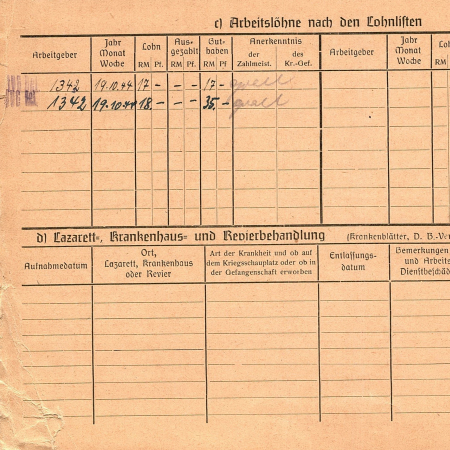 c) Arbeitslöhne nach den Lohnlisten
Arbeitgeber Jahr Monat Woche Lohn RM Pf. Aus- gezahlt RM Pf. Gut- haben RM Pf Anerkenntnis der Zahlmeist. des Kr.-Gef. Arbeitgeber Jahr Monat Woche
1342 19.10.44 17 - - - 17 -
1342 19.10.44 18. - - - 35. -
d) Lazarett-, Krankenhaus- und Revierbehandlung (Krankenblätter, D. B.-Ve
Aufnahmedatum Ort, Lazarett, Krankenhaus oder Revier Art der Krankheit und ob auf dem Kriegsschauplatz oder ob in der Gefangenschaft erworben Entlassungs- datum Bemerkungen und Arbeits Dienstbeschäd